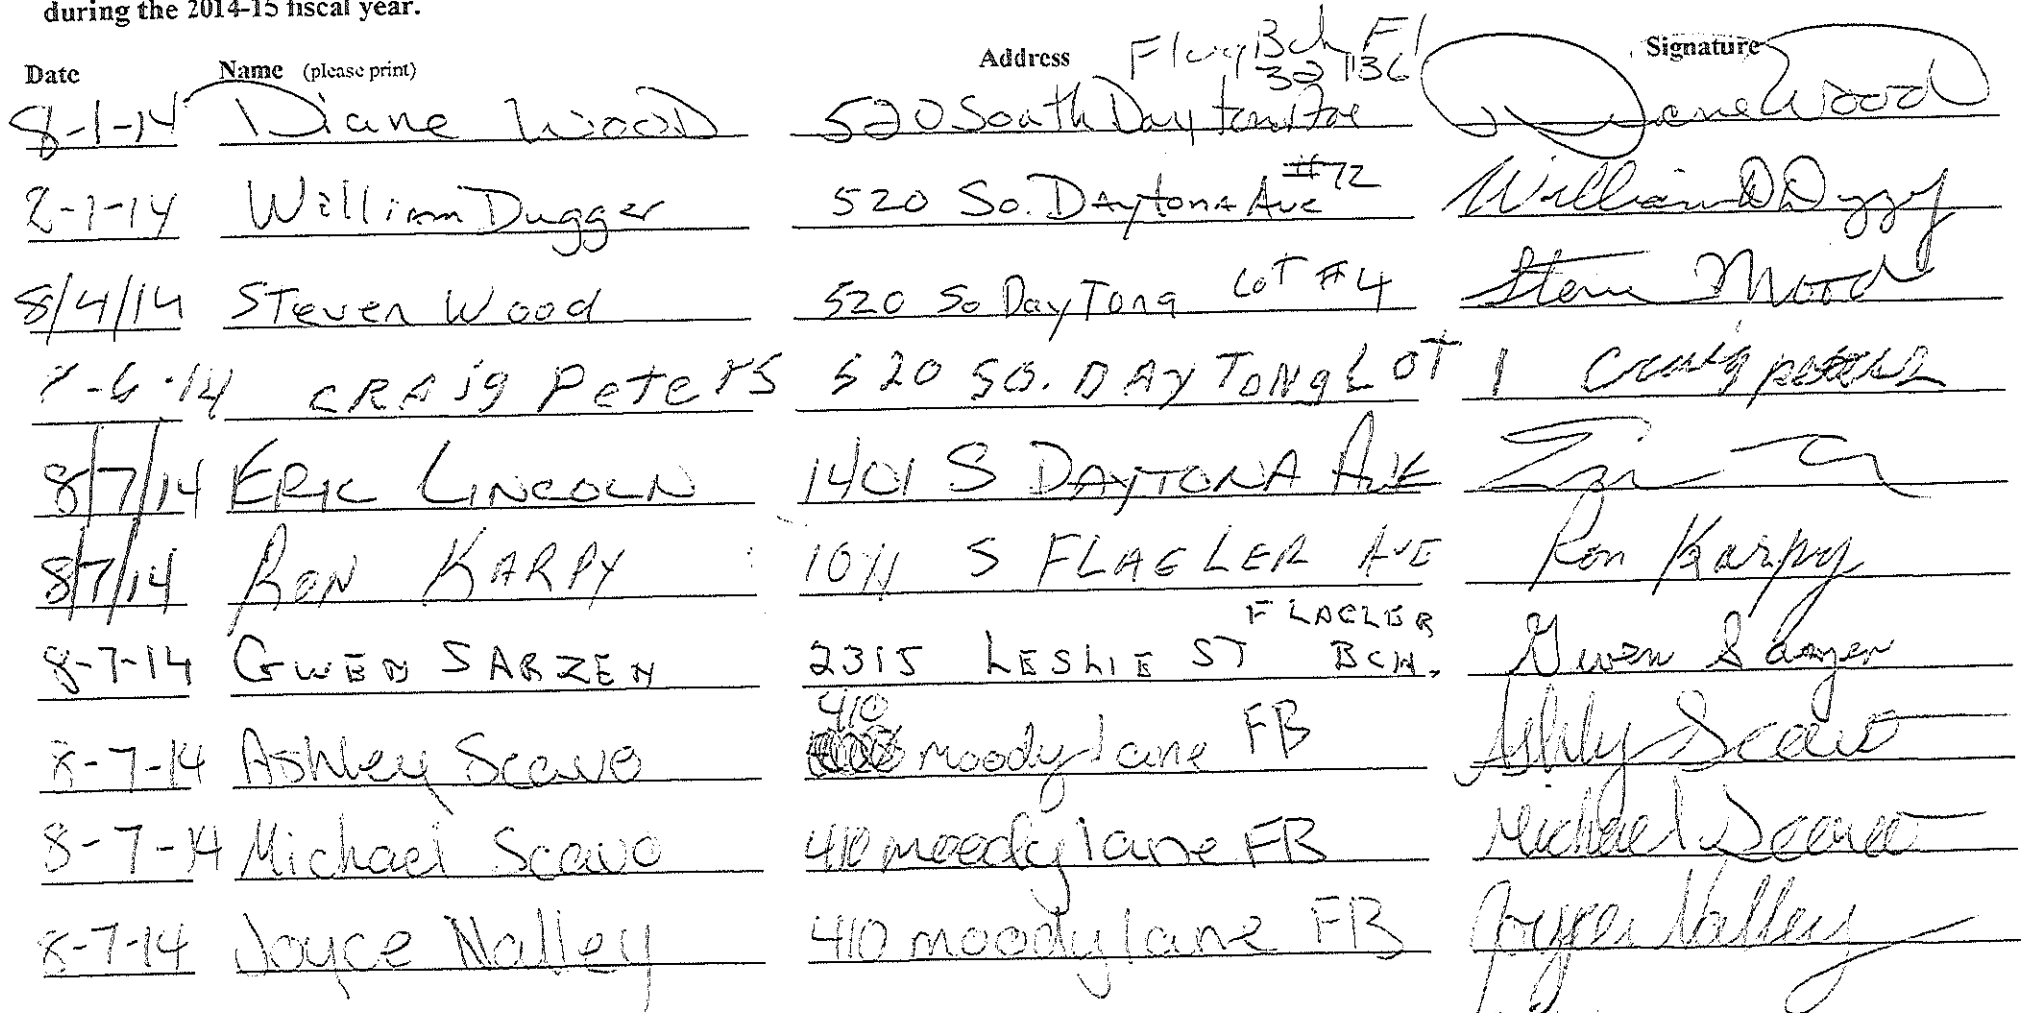 during the 2014-15 fiscal year.
Date Name (please print) Address Flag Bch Fl Signature
32136
8-1-14 Diane Wood 520 South Daytona Ave Diane Wood
8-1-14 William Dugger 520 So. Daytona Ave #72 William D Dugger
8/4/14 Steven Wood 520 So Daytona Lot #4 Steven Wood
8-6-14 CRAig PeteRS 520 SO. DAYTONa LOT 1 Craig peters
8/7/14 ERIC LINCOLN 1401 S DAYTONA AVE
8/7/14 RON KARPY S FLAGLER AVE Ron Karpy
FLAGLER
8-7-14 GWEN SARZEN 2315 LESLIE ST BCH. Gwen Sarzen
410
8-7-14 Ashley Scavo moody lane FB Ashley Scavo
8-7-14 Michael Scavo 410 moody lane FB Michael Scavo
8-7-14 Joyce Nalley 410 moody lane FB Joyce Nalley